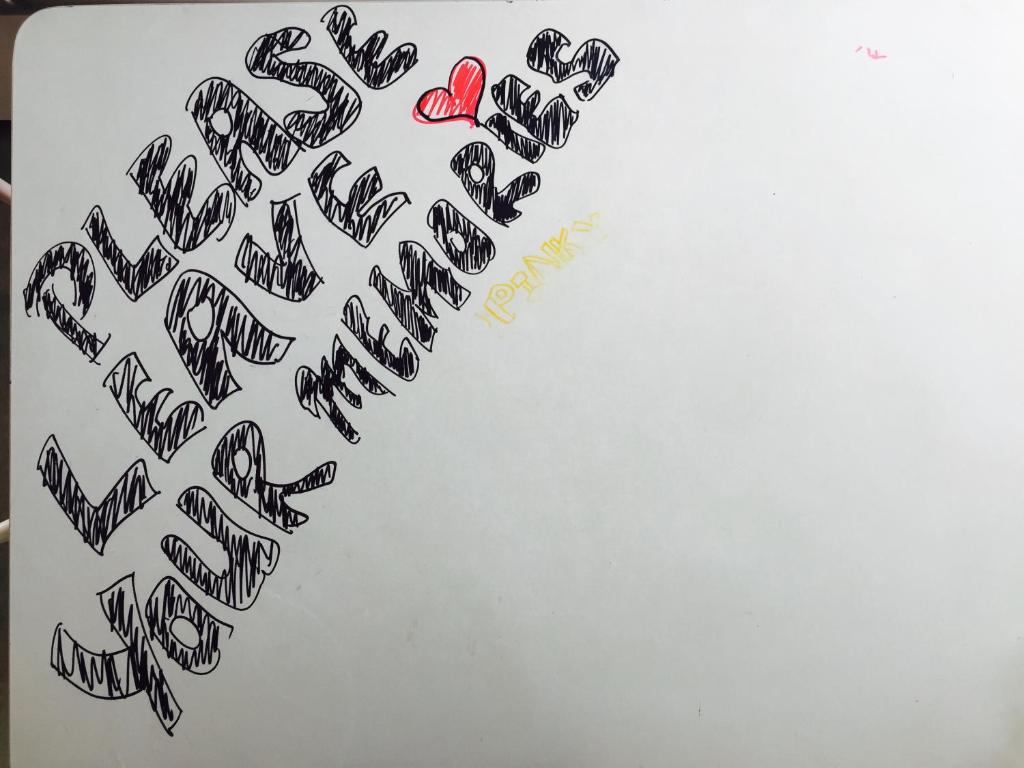 PLEASE
LEAVE
YOUR MEMORIES
PiNK